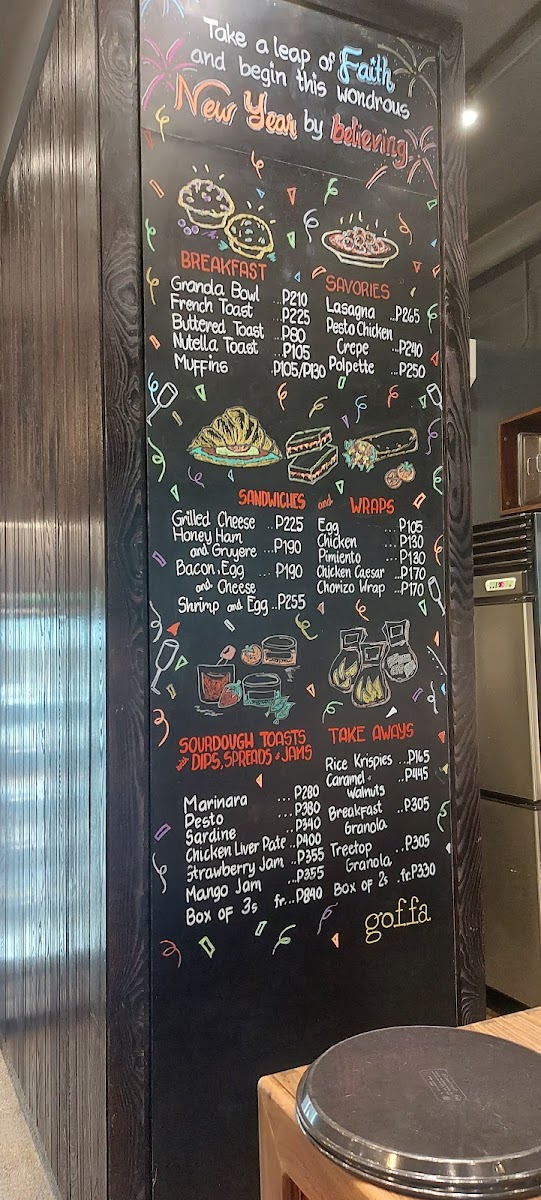 Take a leap of Faith
and begin this wondrous
New Year by believing
BREAKFAST
Granola Bowl ...P210
French Toast ...P225
Buttered Toast ...P80
Nutella Toast ...P105
Muffins P105/P130
SAVORIES
Lasagna ...P265
Pesto Chicken
Crepe ...P240
Polpette ...P250
SANDWICHES and WRAPS
Grilled Cheese ...P225
Honey Ham
and Gruyere ...P190
Bacon, Egg ...P190
and Cheese
Shrimp and Egg ..P255
Egg ...P105
Chicken ...P130
Pimiento ...P130
Chicken Caesar ..P170
Chorizo Wrap ..P170
SOURDOUGH TOASTS
with DIPS, SPREADS & JAMS
Marinara ...P280
Pesto ...P380
Sardine ..P340
Chicken Liver Pate ..P400
Strawberry Jam ..P355
Mango Jam ...P355
Box of 3s fr...P840
TAKE AWAYS
Rice Krispies ..P165
Caramel & ..P445
Walnuts
Breakfast ..P305
Granola
Treetop ..P305
Granola
Box of 2s .fr.P330
goffa